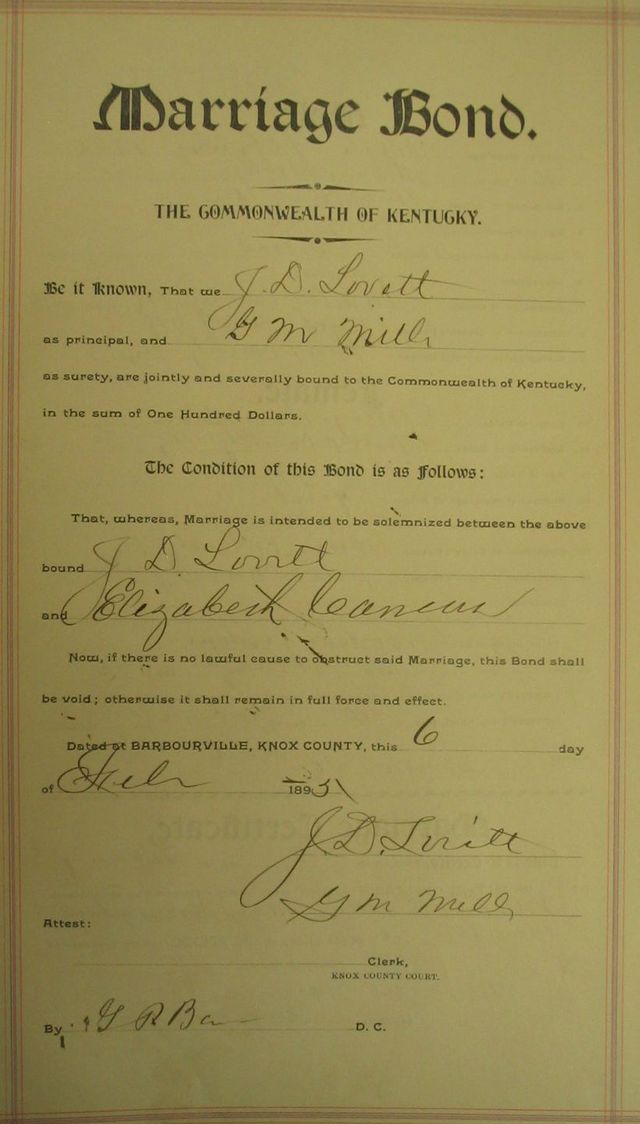 Marriage Bond.
THE COMMONWEALTH OF KENTUCKY.
Be it Known, That we J. D. Lovett
as principal, and G M Mills
as surety, are jointly and severally bound to the Commonwealth of Kentucky,
in the sum of One Hundred Dollars.
The Condition of this Bond is as follows:
That, whereas, Marriage is intended to be solemnized between the above
bound J D Lovett
and Elizabeth
Now, if there is no lawful cause to obstruct said Marriage, this Bond shall
be void; otherwise it shall remain in full force and effect.
Dated at BARBOURVILLE, KNOX COUNTY, this 6 day
of Feb 1895
J. D. Lovitt
G M Mills
Attest:
Clerk,
KNOX COUNTY COURT.
By G R D. C.